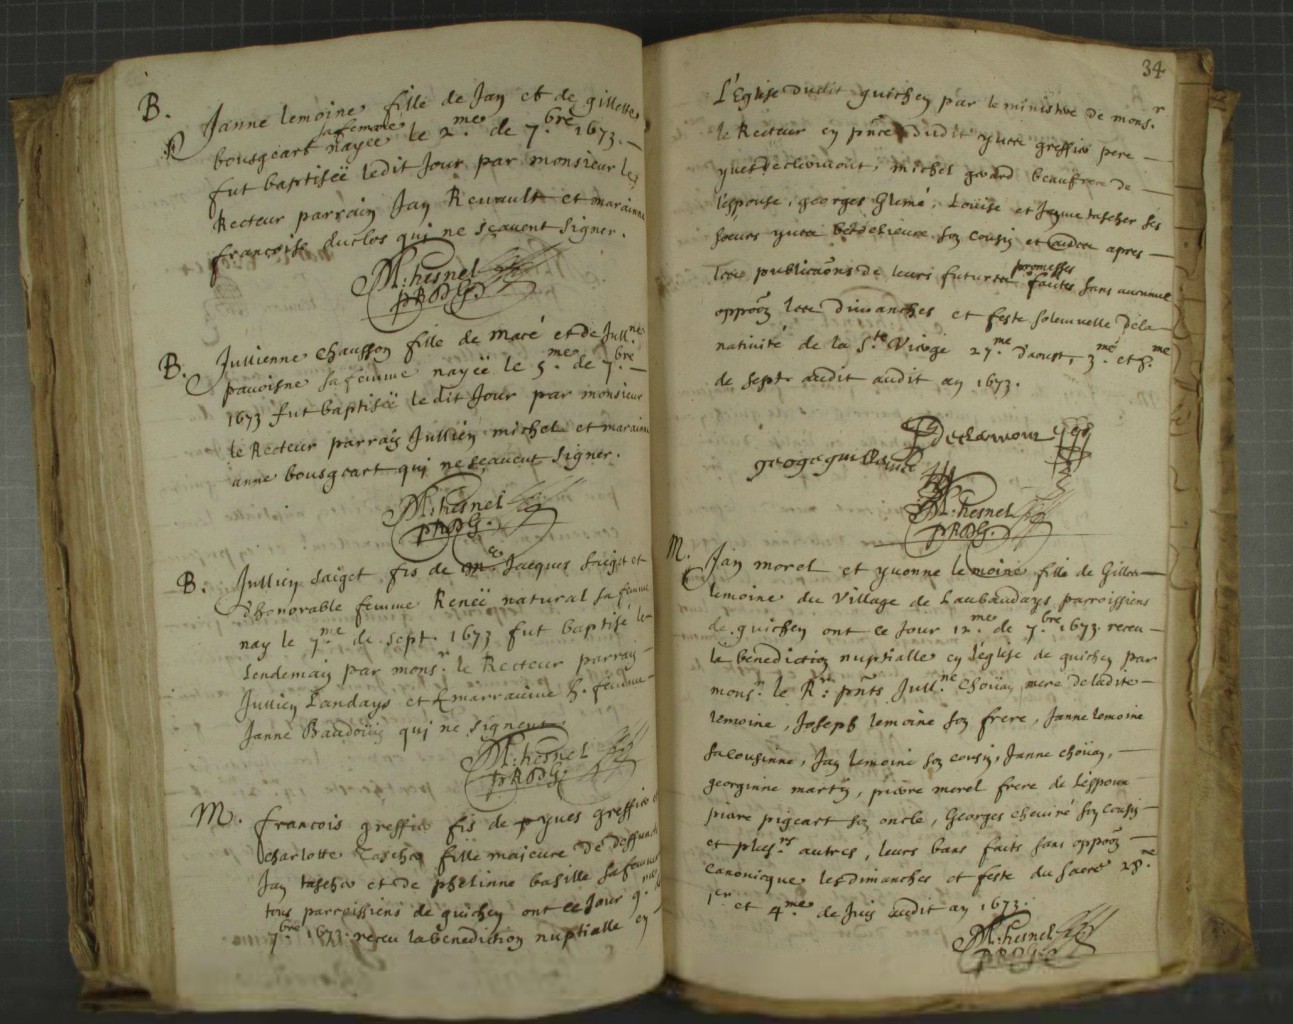 B.
Janne lemoine fille de Jan et de gillette
bousgeart sa femme nayee le 2.me de 7.bre 1673.
fut baptiseë ledit Jour par monsieur le
Recteur parrain Jan Renault et maraine
francoise duclos qui ne scavent signer.
M: hesnel
PRDG.
B.
Jullienne chausson fille de Macé et de Jull.ne
pauoisne sa femme nayeë le 5.me de 7.bre
1673 fut baptiseë ledit Jour par monsieur
le Recteur parrain Jullien michel et maraine
anne bousgeart qui ne scavent signer.
M: hesnel
PRDG.
B.
Jullien saiget fis de Jacques saiget et
d'honorable femme Reneë natural sa femme
nay le 7.me de sept 1673 fut baptisé le
lendemain par mons.r le Recteur parrain
Jullien Landays et marraine h. femme
Janne Baudoüin qui ne signent.
M: hesnel
PRDG.
M.
francois greffier fis de yves greffier et
charlotte tascher fille majeure de deffunct
Jan tascher et de phelinne basille sa femme
tous parroissiens de guichen ont ce Jour 9.me de
7.bre 1673. receu la benediction nuptialle en
34
L'Eglise dudit guichen par le ministre de mons.r
le Recteur en pñce dudit yves greffier pere
michel beaufrere de
l'espouse, georges Glemé, Louise et Janne tascher ses
soeurs yves son cousin et autres apres
les publicaõns de leurs futures promesses faites sans aucune
oppoõn les dimanches et feste solemnelle de la
nativité de la S.te Vierge 27.me d'aoust, 3.me et 8.me
de sept audit audit an 1673.
M: hesnel
PRDG.
M.
Jan morel et yvonne lemoine fille de Gilles
lemoine du Village de Laubaudays parroissiens
de guichen ont ce Jour 12.me de 7.bre 1673. receu
la benediction nuptialle en L'eglise de guichen par
mons.r le R.r pñts Jull.ne choüan mere de ladite
lemoine, Joseph lemoine son frere, Janne lemoine
sa cousinne, Jan lemoine son cousin, Janne choüan,
georginne martin, pierre morel frere de L'espoux
pierre pigeart son oncle, Georges cheviré son cousin
et plus.rs autres, leurs bans faits sans oppoõn
canonicque les dimanches et feste du sacre 28.me
1.er et 4.me de Juin audit an 1673.
M: hesnel
PRDG.